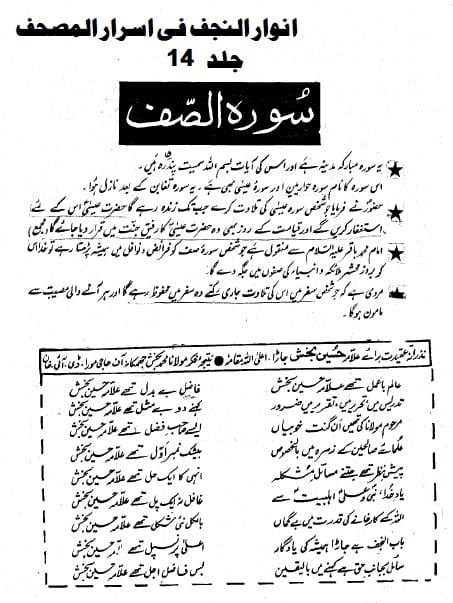 انوار النجف فی اسرار المصحف
جلد 14
سُورہ الصّف
یہ سورہ مبارکہ مدینہ ہے اور اس کی آیات بسم اللہ سمیت پندرہ ہیں۔
اس سورہ کا نام سورہ حواریین اور سورۂ عیسیٰ بھی ہے۔ یہ سورہ تغابن کے بعد نازل ہوا۔
حضورؐ نے فرمایا جو شخص سورہ عیسیٰ کی تلاوت کرے جب تک زندہ رہے گا حضرت عیسیٰؑ اس کے لئے
استغفار کریں گے اور قیامت کے روز بھی وہ حضرت عیسیٰؑ کا رفیق جنت میں قرار دیا جائے گا (مجمع)
امام محمد باقر علیہ السلام سے منقول ہے جو شخص سورۃ صف کو فرائض و نوافل میں ہمیشہ پڑھتا رہے تو خدا اس
کو بروز محشر ملائکہ و انبیاء کی صفوں میں جگہ دے گا۔
مروی ہے کہ جو شخص سفر میں اس کی تلاوت جاری رکھے وہ سفر میں محفوظ رہے گا اور ہر آنے والی مصیبت سے
مامون ہوگا۔
نذرانۂ عقیدت برائے علامہ حسین بخش جاڑا۔ اعلی اللہ مقامہ ● نتیجۂ فکر مولانا محمد بخش آف حاجی مورا۔ ڈی۔ آئی۔ خان
عالم باعمل تھے علامہ حسین بخش
فاضل بے بدل تھے علامہ حسین بخش
تدریس میں تحریر میں، تقریر میں ضرور
کہنے دو بے مثل تھے علامہ حسین بخش
مرحوم مولانا کی تھیں اَن گنت خوبیاں
ایسے صاحب فضل تھے علامہ حسین بخش
علمائے صالحین کے زمرہ میں بالخصوص
بیشک نمبر اوّل تھے علامہ حسین بخش
پیشِ نظر تھے جتنے مسائل مشکلہ
انہی کا ایک حل تھے علامہ حسین بخش
یادِ خدا، نبیؐ و اہلبیتؑ سے
غافل نہ ایک پل تھے علامہ حسین بخش
اللہ کے کارخانے کی قدرت میں بے گماں
بالکل نئی شکل تھے علامہ حسین بخش
باب النجف ہے جاڑا ہمیشہ کی یادگار
اعلیٰ پرنسپل تھے علامہ حسین بخش
سائل بجانب حق ہے کہنے میں بالیقین
بس فاضل اجل تھے علامہ حسین بخش